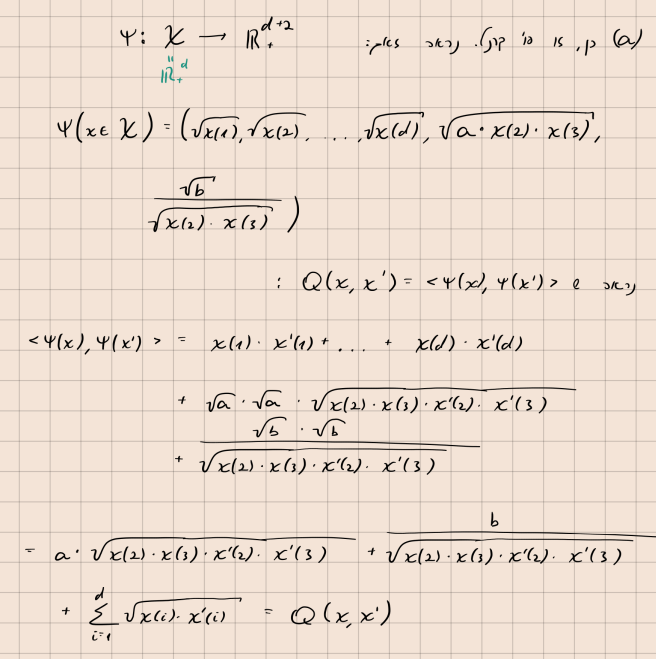 (a) כן, זו פו' קרנל. נראה זאת:
Ψ: X → ℝ₊^{d+2}
"
ℝ₊^d
Ψ(x∈X) = (√x(1), √x(2), ..., √x(d), √(a·x(2)·x(3)),
√b / √(x(2)·x(3)) )
נראה ש Q(x, x') = <Ψ(x), Ψ(x')> :
<Ψ(x), Ψ(x')> = x(1)·x'(1) + ... + x(d)·x'(d)
+ √a·√a·√(x(2)·x(3)·x'(2)·x'(3))
+ √b·√b / √(x(2)·x(3)·x'(2)·x'(3))
= a·√(x(2)·x(3)·x'(2)·x'(3)) + b / √(x(2)·x(3)·x'(2)·x'(3))
+ Σ_{i=1}^{d} √(x(i)·x'(i)) = Q(x, x')